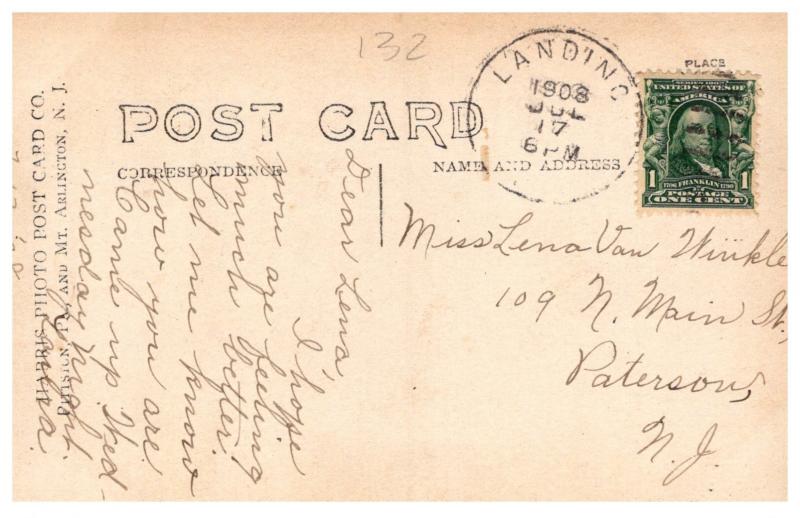 132
PLACE
LANDING
1908
JUL
17
6 PM
SERIES 1902
UNITED STATES OF
AMERICA
1 1706 FRANKLIN 1790 1
POSTAGE
ONE CENT
POST CARD
CORRESPONDENCE
NAME AND ADDRESS
HARRIS PHOTO POST CARD CO.
PITTSTON, PA., AND MT. ARLINGTON, N. J.
Dear Lena,
I hope
you are feeling
much better.
Let me know
how you are
Came up Wed-
nesday night.
Miss Lena Van Winkle
109 N. Main St.,
Paterson,
N. J.